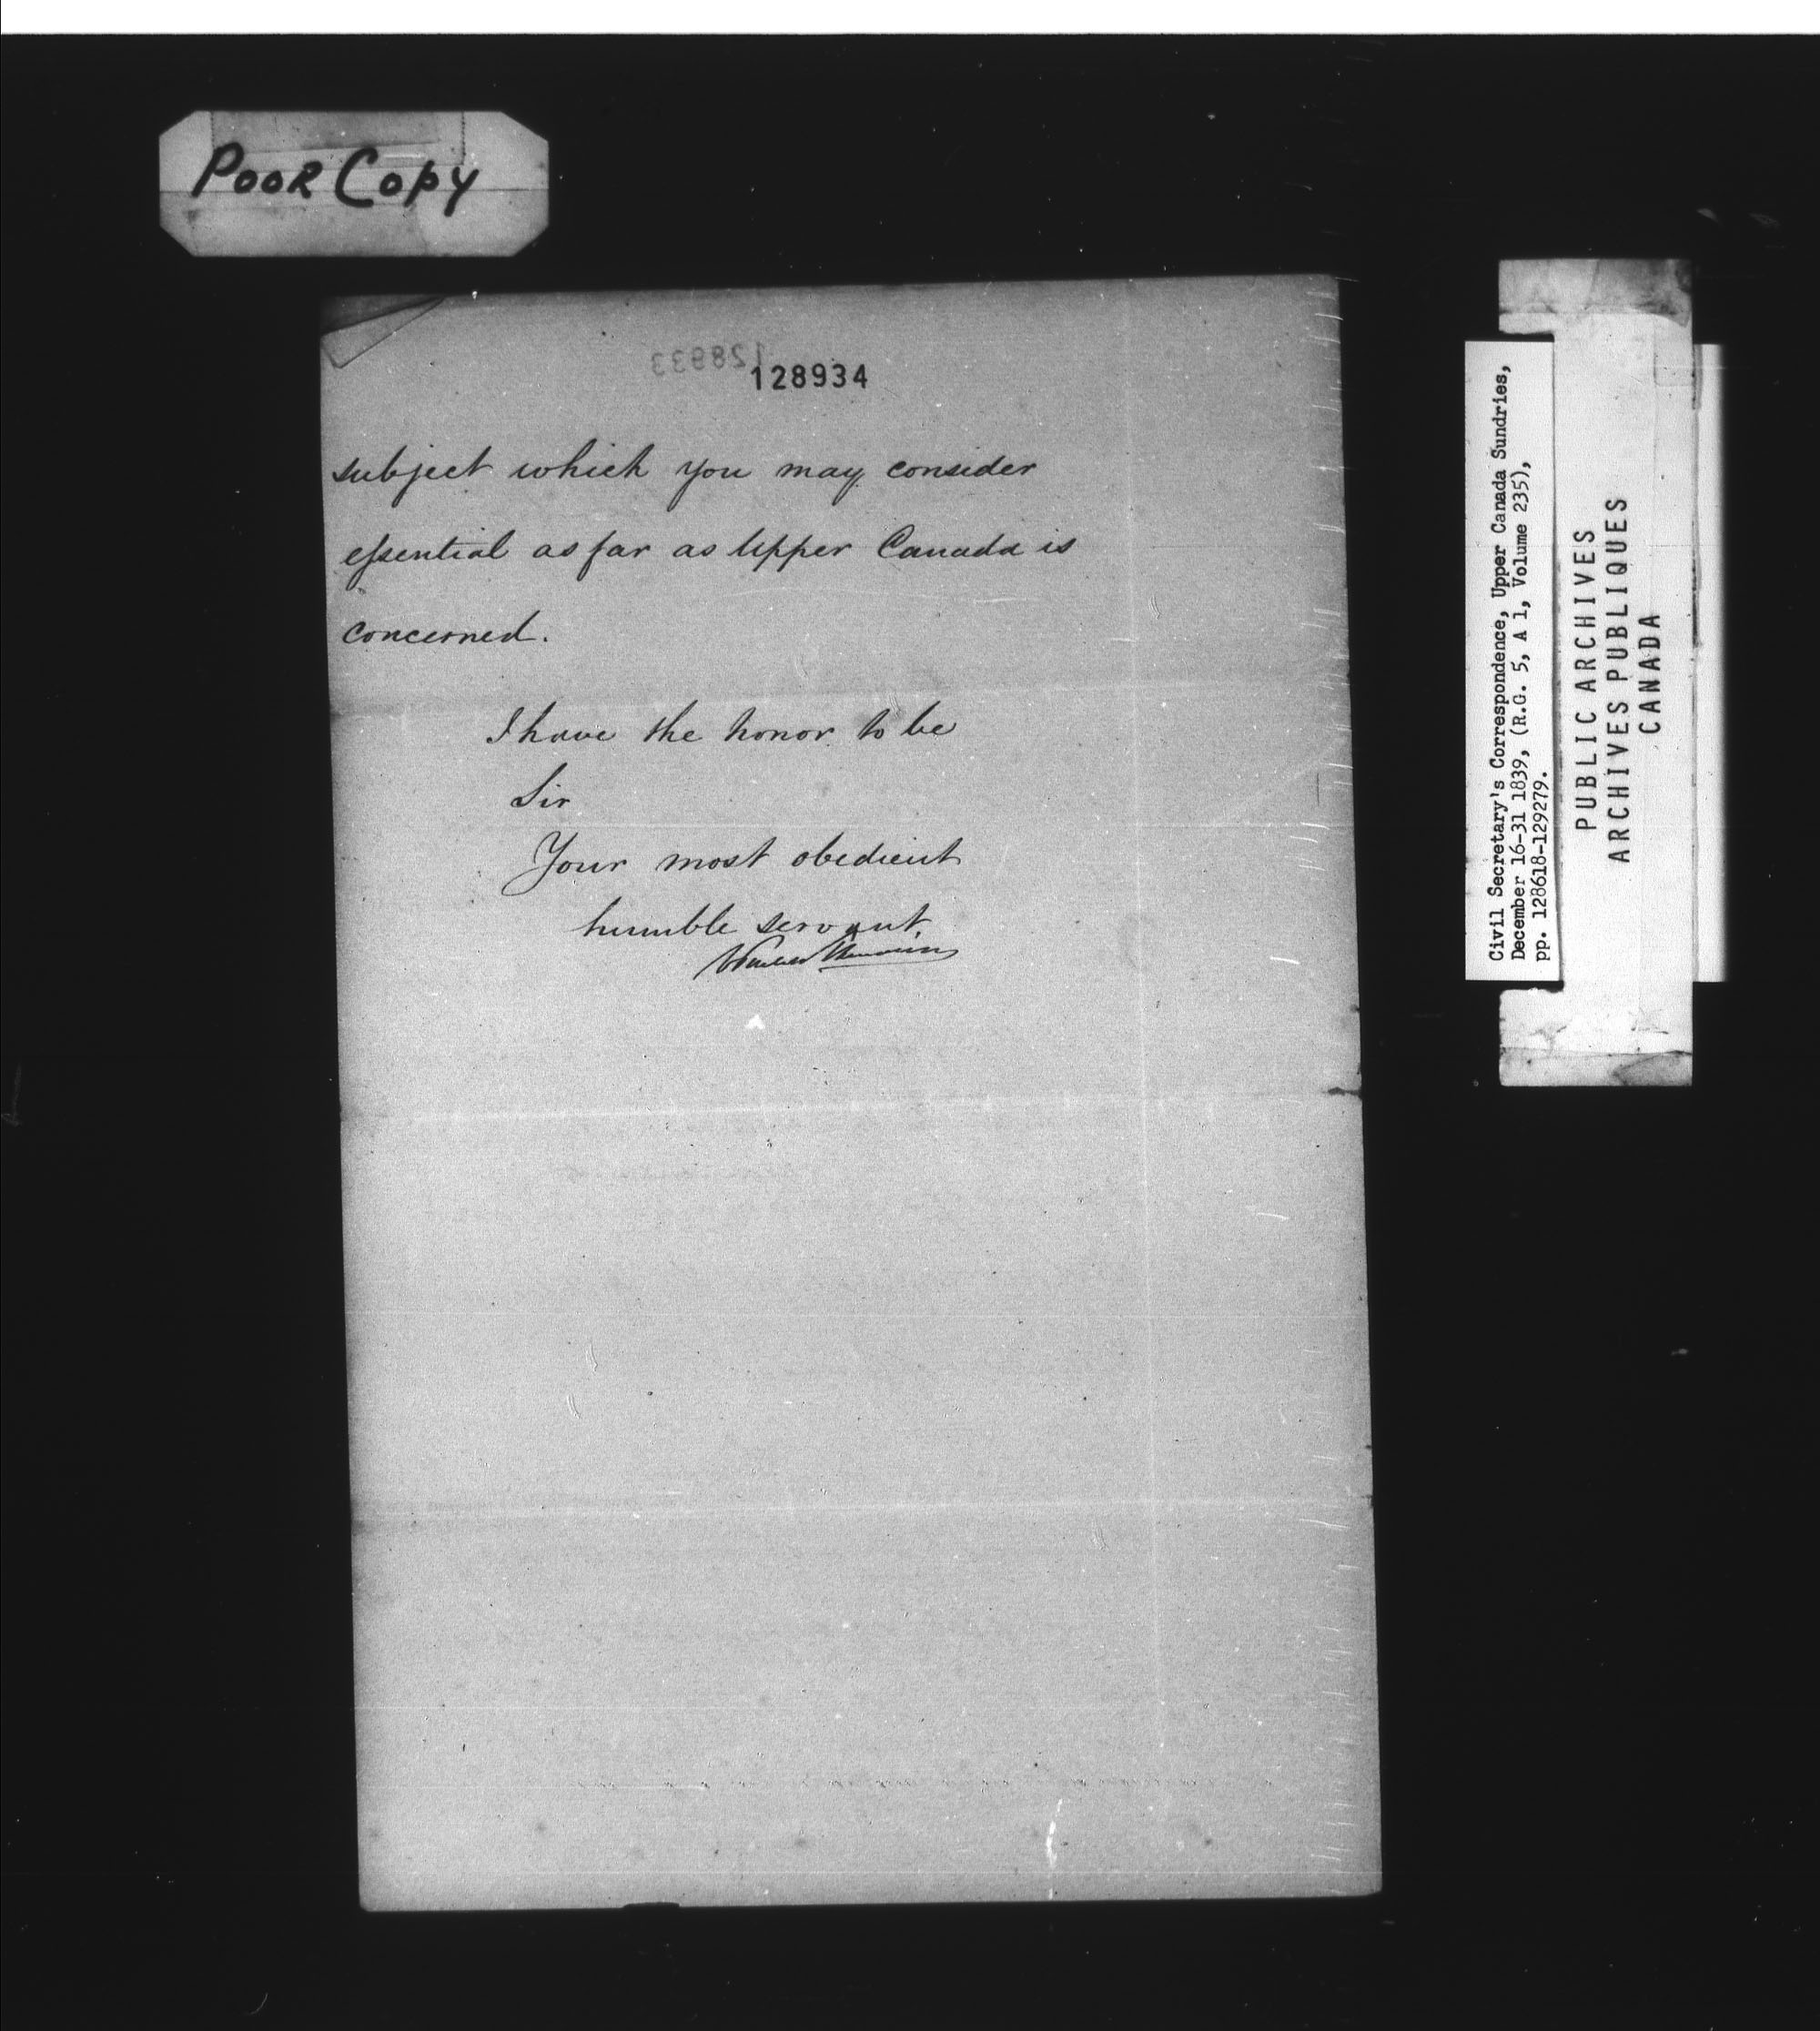 POOR COPY
128933
128934
subject which you may consider
essential as far as Upper Canada is
concerned.
I have the honor to be
Sir
Your most obedient
humble servant,
Civil Secretary's Correspondence, Upper Canada Sundries,
December 16-31 1839, (R.G. 5, A 1, Volume 235),
pp. 128618-129279.
PUBLIC ARCHIVES
ARCHIVES PUBLIQUES
CANADA